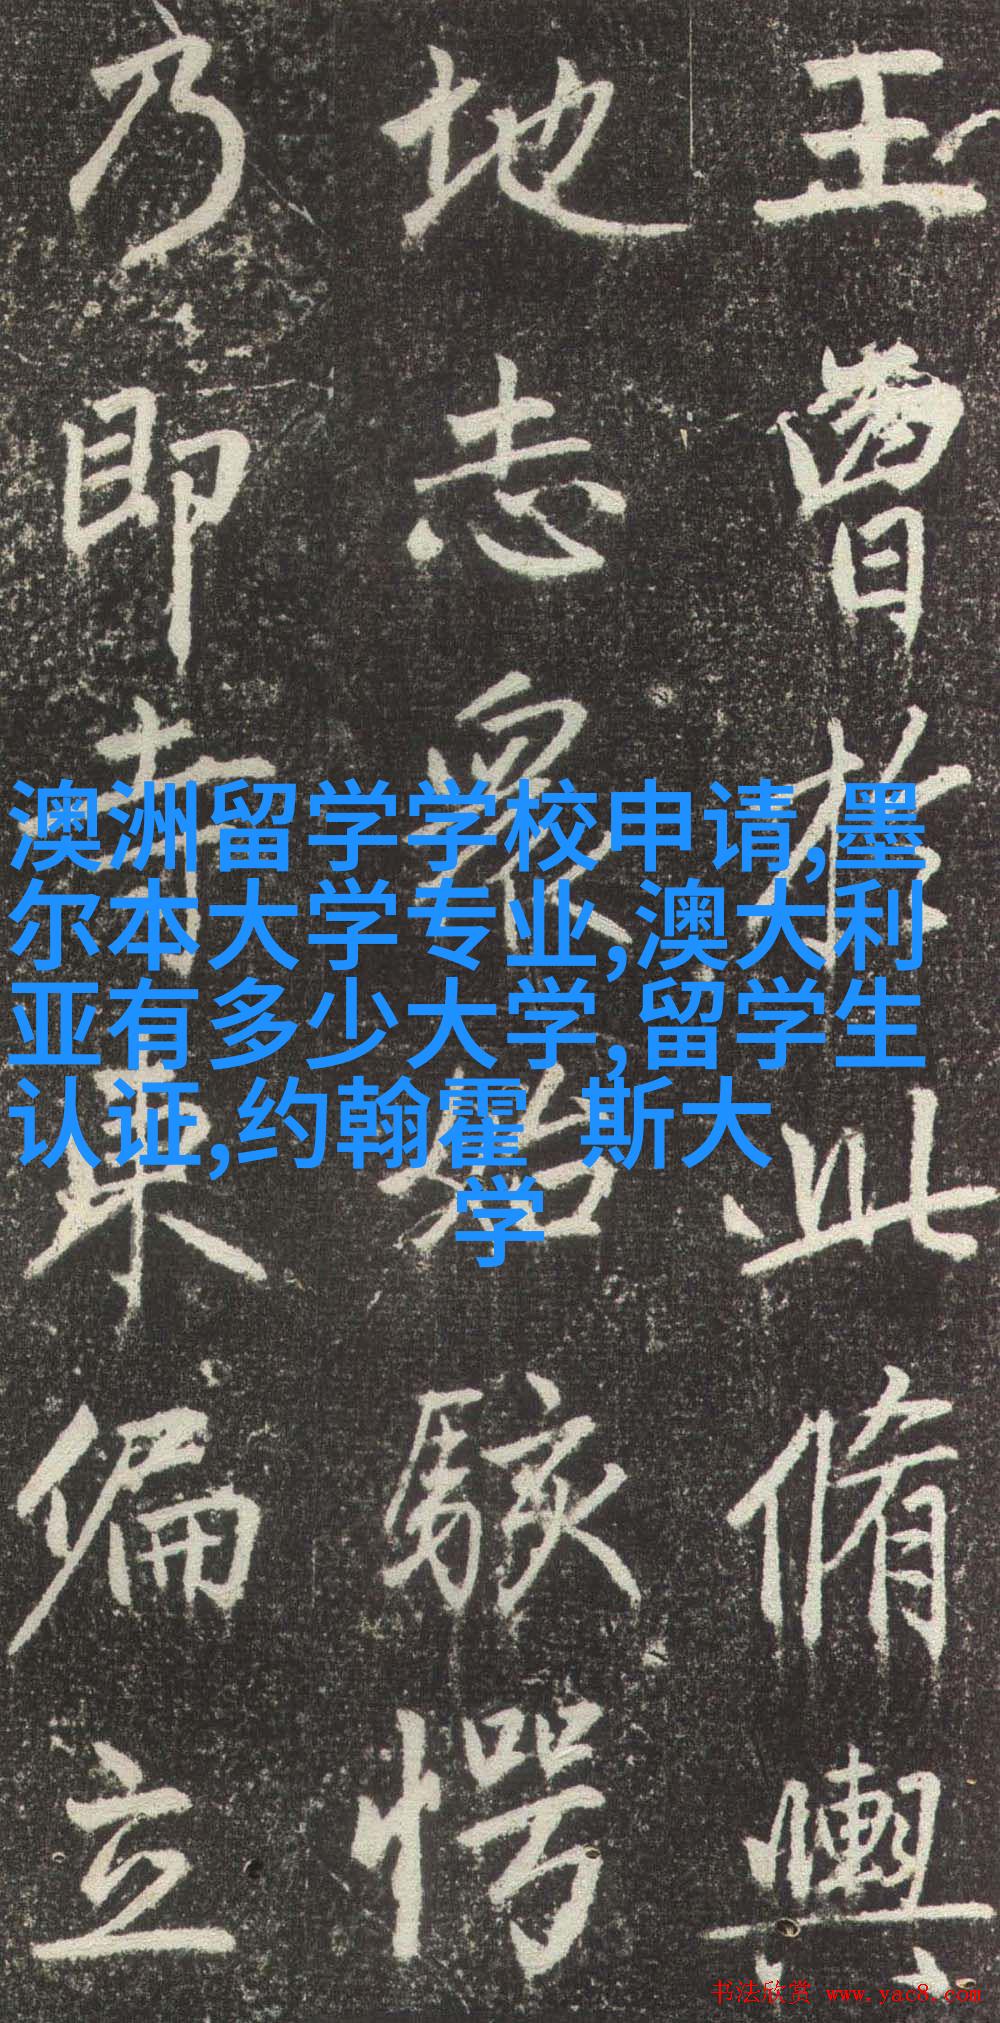 王曾於此脩輿
地志眾始駭愕
乃即寺東偏立
澳洲留学学校申请,墨
尔本大学专业,澳大利
亚有多少大学,留学生
认证,约翰霍 斯大
学
书法欣赏 www.yac8.com